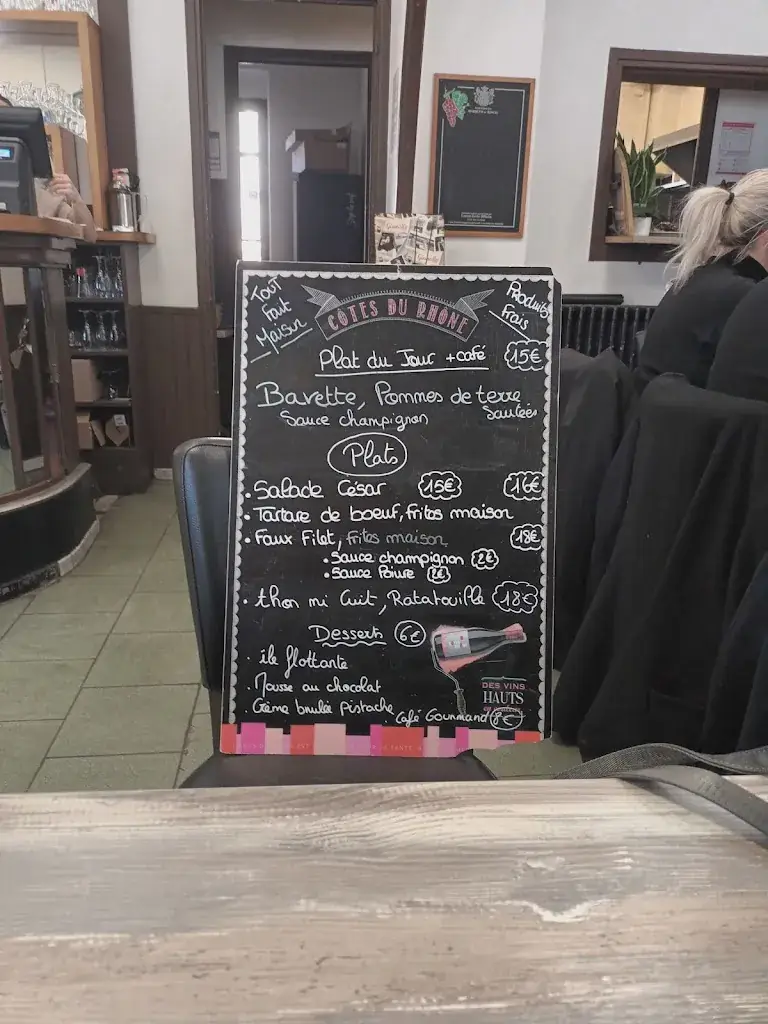 Tout
Fait
Maison
CÔTES DU RHÔNE
Produits
Frais
Plat du Jour + café 15€
Bavette, Pommes de terre
Sauce champignon Sautées
Plats
• Salade César 15€ 16€
• Tartare de boeuf, frites maison
• Faux Filet, frites maison 18€
• Sauce champignon 2€
• Sauce Poivre 2€
• thon mi Cuit, Ratatouille 18€
Desserts 6€
• île flottante
• Mousse au chocolat
• Crème brulée Pistache
Café Gourmand 8€
DES VINS
HAUTS